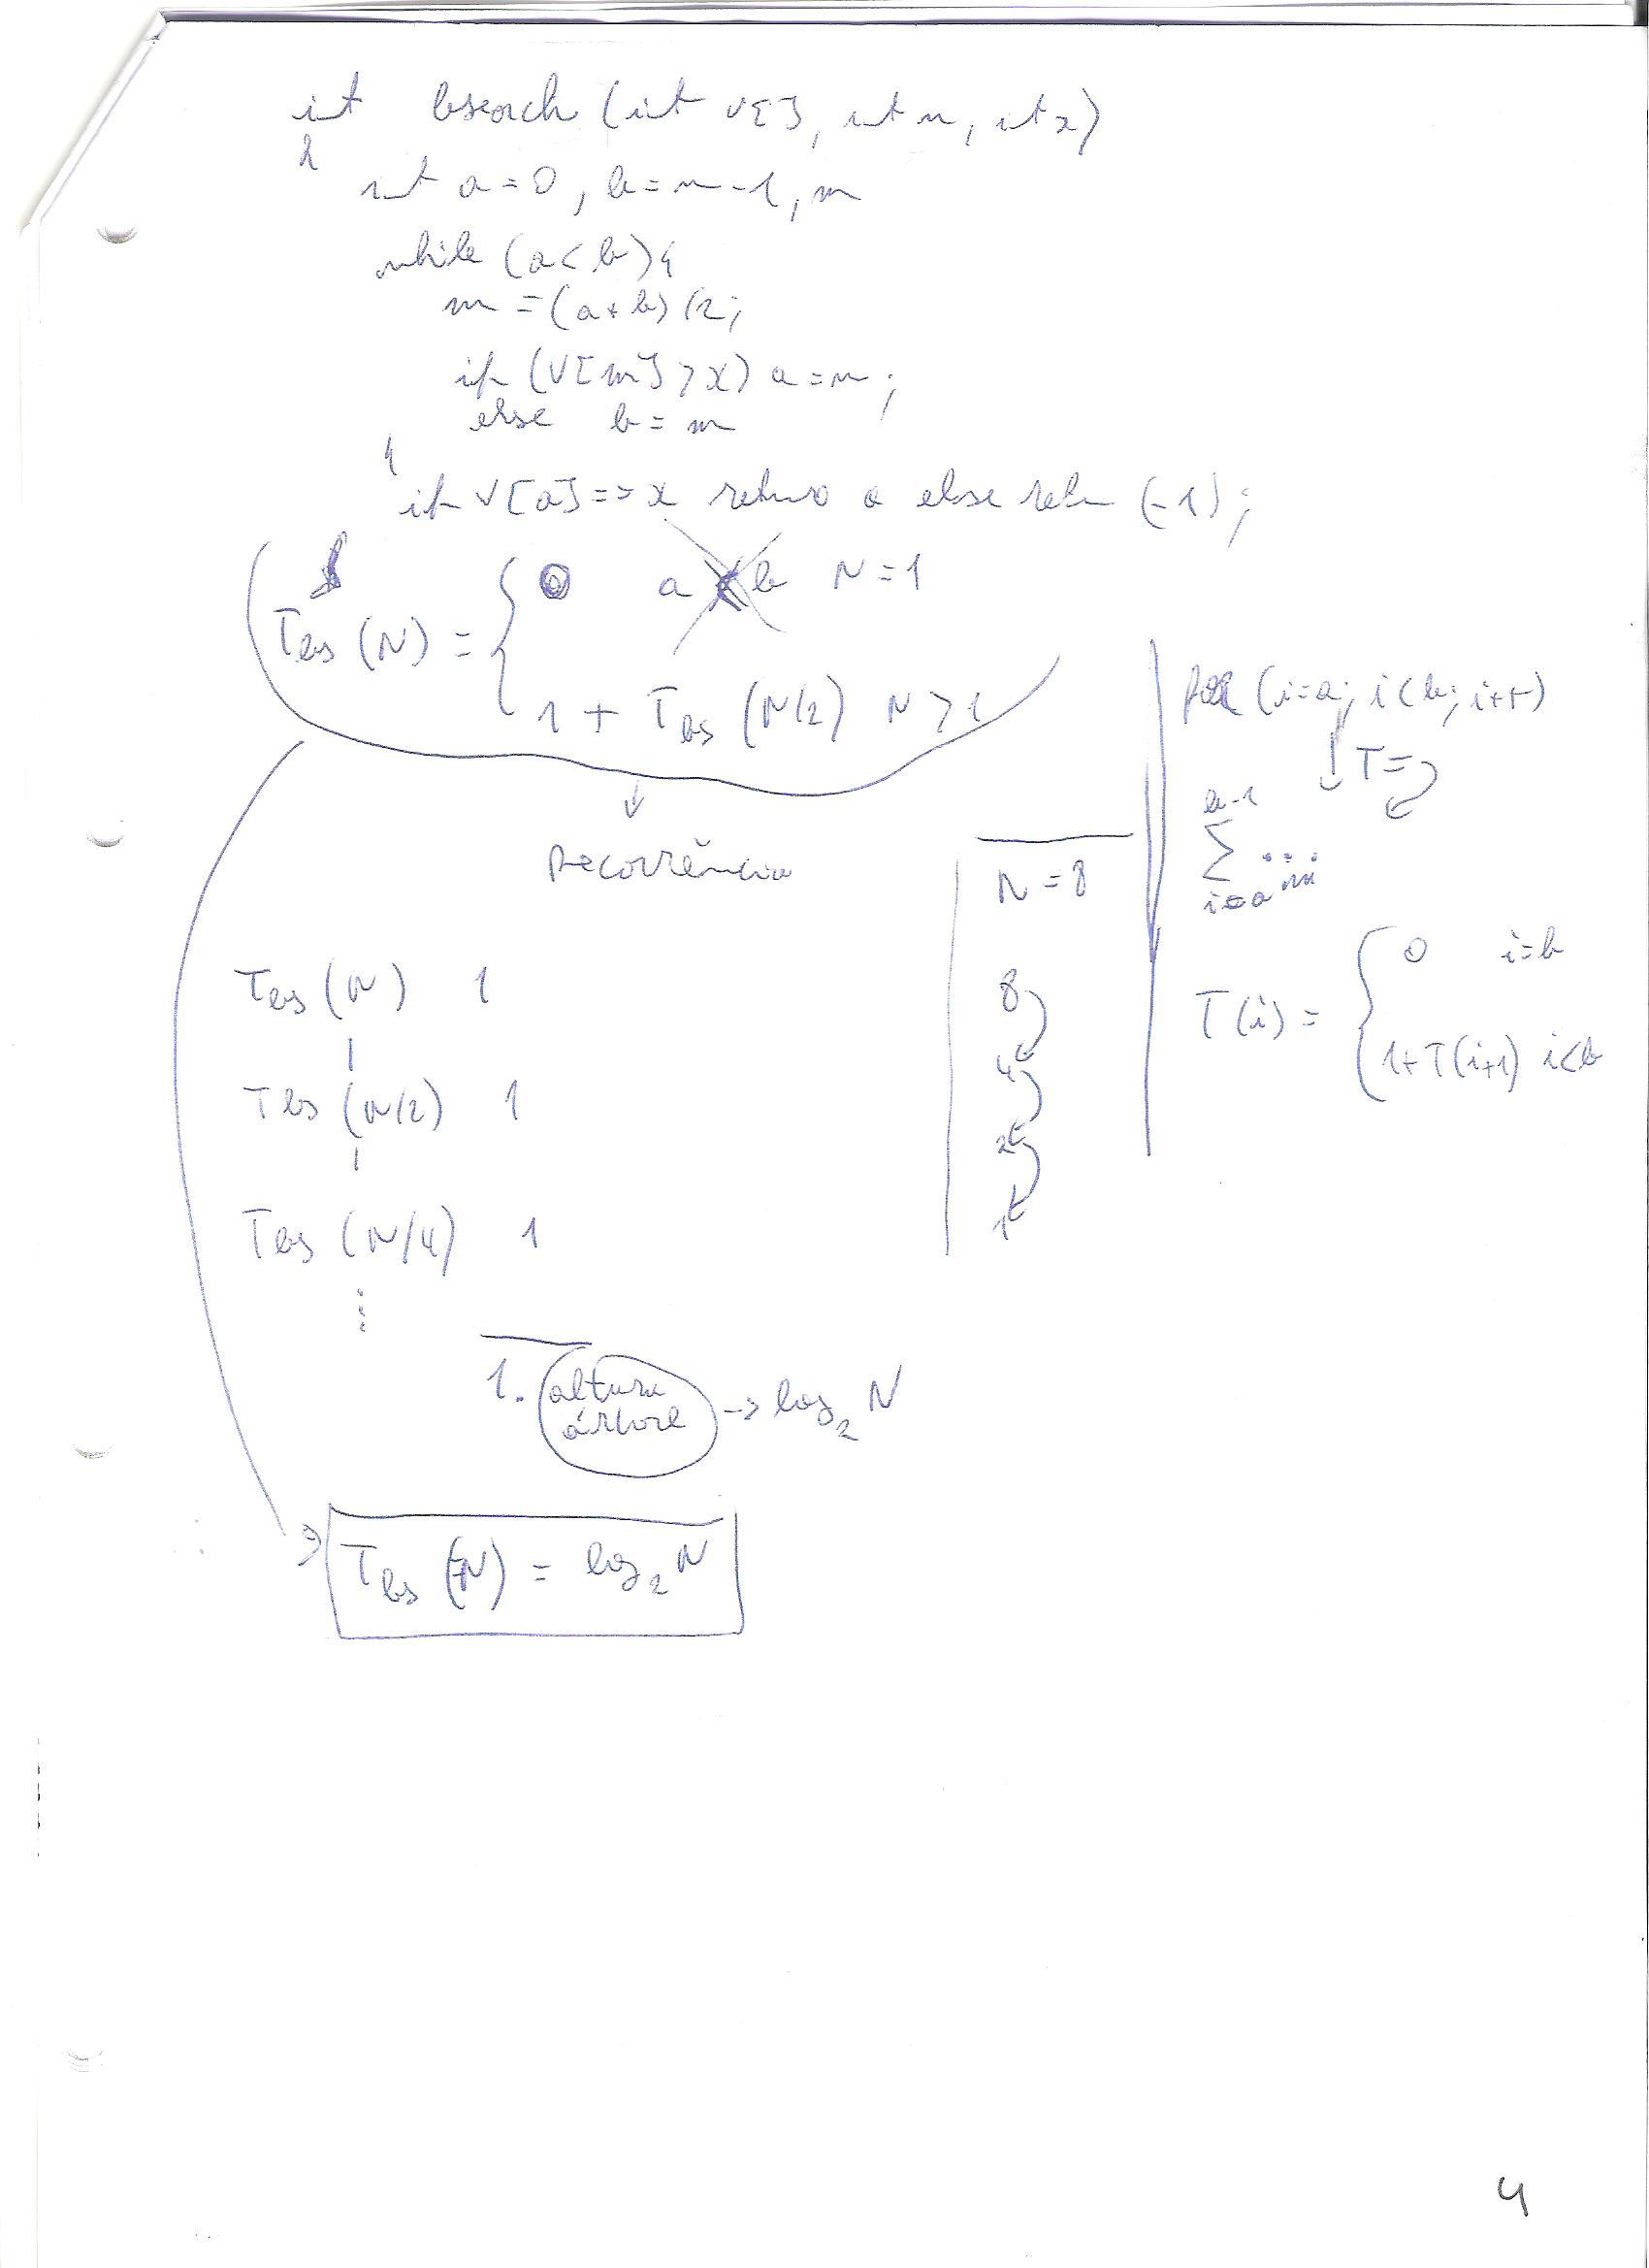 int bsearch (int v[], int n, int x)
{
int a = 0, b = n-1, m
while (a < b) {
m = (a + b) / 2;
if (v[m] > x) a = m;
else b = m
}
if v[a] == x return a else return (-1);
Tbs (N) = { 0 N = 1
1 + Tbs (N/2) N > 1
↓
Recorrência
Tbs (N) 1
|
Tbs (N/2) 1
|
Tbs (N/4) 1
⋮
1. altura árvore -> log₂ N
Tbs (N) = log₂ N
N = 8
8
4
2
1
for (i=a; i<b; i++)
↓ T =
b-1
∑ ...
i=a
T(i) = { 0 i=b
1+T(i+1) i<b
4